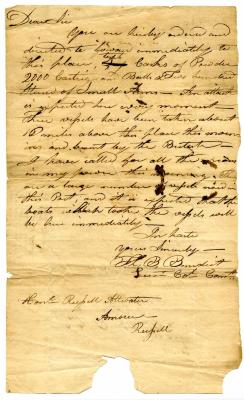 Dear Sir
You are hereby ordered and
directed to forward immediately to
this place, Casks of Powder
2000 Cartridges and Balls & Two hundred
Stand of Small Arms - An attack
is expected here every moment -
Three vessels have been taken about
10 miles above this place this morn
ing and burnt by the British -
I have called for all the
in my power this evening -
on a large number of vessels now in
this Port and it is expected that the
boats which took the vessels will
be here immediately
In haste
Yours Sincerely
B Benedict
Lieut Col. Comm
Russell Attwater
Russell